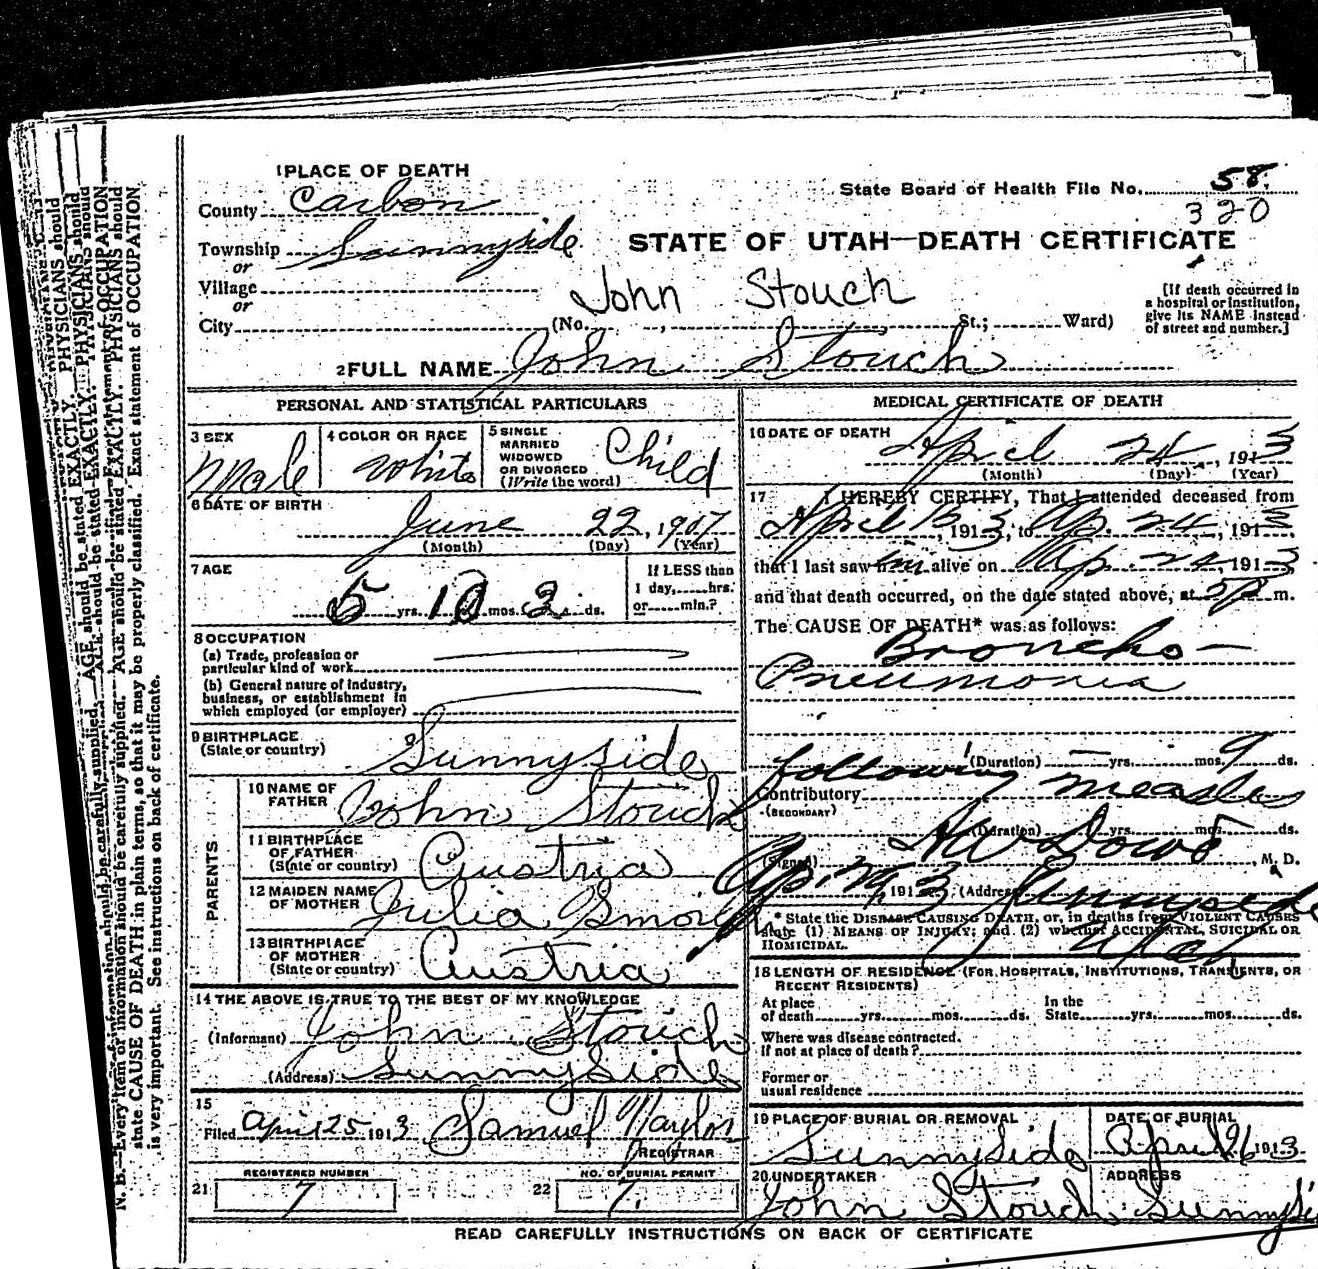 1 PLACE OF DEATH
County Carbon
State Board of Health File No. 58.
320
Township Sunnyside
or
STATE OF UTAH—DEATH CERTIFICATE
Village
or
John Stouch
City (No. , St.; Ward)
[If death occurred in
a hospital or institution,
give its NAME instead
of street and number.]
2 FULL NAME John Stouch
PERSONAL AND STATISTICAL PARTICULARS
3 SEX
Male
4 COLOR OR RACE
White
5 SINGLE
MARRIED
WIDOWED
OR DIVORCED
(Write the word)
Child
6 DATE OF BIRTH
June 22, 1907
(Month) (Day) (Year)
7 AGE
5 yrs. 10 mos. 2 ds.
If LESS than
1 day, hrs.
or min.?
8 OCCUPATION
(a) Trade, profession or
particular kind of work
(b) General nature of industry,
business, or establishment in
which employed (or employer)
9 BIRTHPLACE
(State or country)
Sunnyside
PARENTS
10 NAME OF
FATHER
John Stouch
11 BIRTHPLACE
OF FATHER
(State or country)
Austria
12 MAIDEN NAME
OF MOTHER
Julia
13 BIRTHPLACE
OF MOTHER
(State or country)
Austria
14 THE ABOVE IS TRUE TO THE BEST OF MY KNOWLEDGE
(Informant) John Stouch
(Address) Sunnyside
15
Filed April 25 1913 Samuel Naylor
REGISTRAR
REGISTERED NUMBER
21 7
NO. OF BURIAL PERMIT
22 7.
MEDICAL CERTIFICATE OF DEATH
16 DATE OF DEATH
April 24, 1913
(Month) (Day) (Year)
17 I HEREBY CERTIFY, That I attended deceased from
April 15, 1913, to Ap. 24, 1913,
that I last saw him alive on Ap. 24, 1913
and that death occurred, on the date stated above, at 5 P m.
The CAUSE OF DEATH* was as follows:
Broncho-
Pneumonia
(Duration) yrs. mos. 9 ds.
following measles
Contributory
(SECONDARY)
(Duration) yrs. mos. ds.
(Signed) A W Dowd, M. D.
Ap. 1913 (Address) Sunnyside
Utah
* State the DISEASE CAUSING DEATH, or, in deaths from VIOLENT CAUSES
state (1) MEANS OF INJURY; and (2) whether ACCIDENTAL, SUICIDAL OR
HOMICIDAL.
18 LENGTH OF RESIDENCE (FOR HOSPITALS, INSTITUTIONS, TRANSIENTS, OR
RECENT RESIDENTS)
At place
of death yrs. mos. ds.
In the
State yrs. mos. ds.
Where was disease contracted.
If not at place of death?
Former or
usual residence
19 PLACE OF BURIAL OR REMOVAL
Sunnyside
DATE OF BURIAL
April 26 1913
20 UNDERTAKER
John Stouch
ADDRESS
READ CAREFULLY INSTRUCTIONS ON BACK OF CERTIFICATE
N. B.—Every item of information should be carefully supplied. AGE should be stated EXACTLY. PHYSICIANS should
state CAUSE OF DEATH in plain terms, so that it may be properly classified. Exact statement of OCCUPATION
is very important. See instructions on back of certificate.